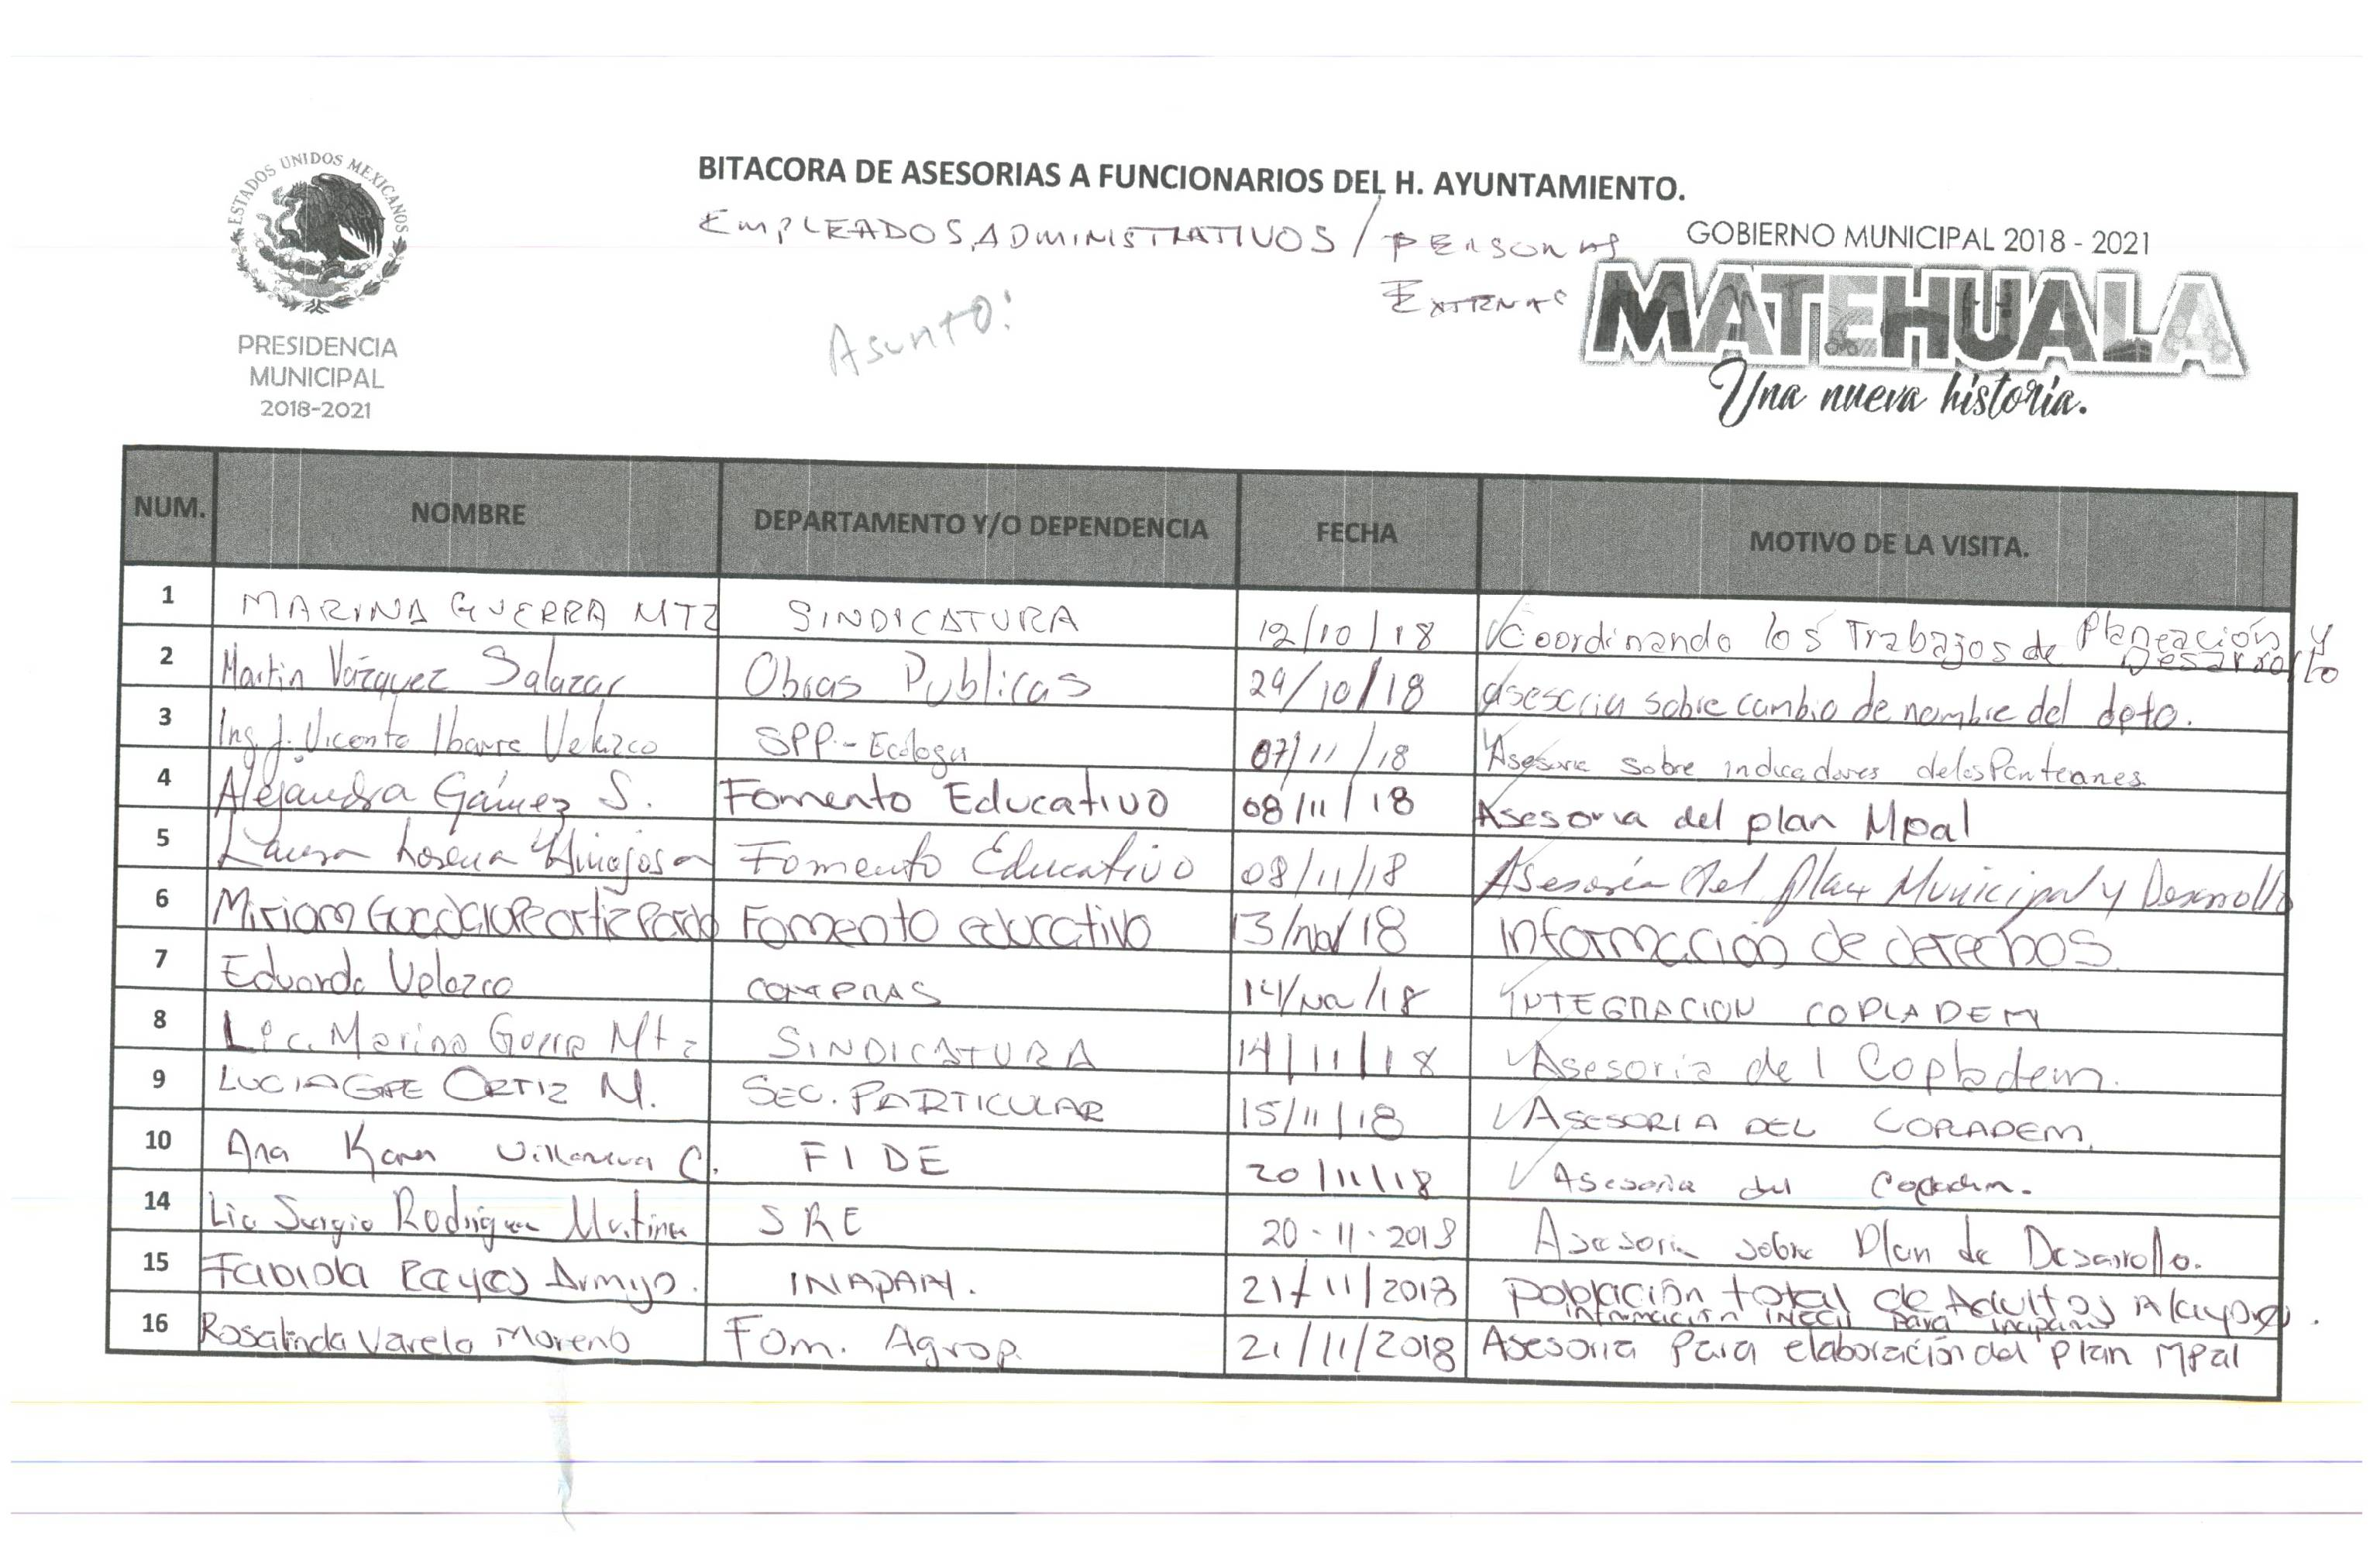 ESTADOS UNIDOS MEXICANOS
PRESIDENCIA
MUNICIPAL
2018-2021
BITACORA DE ASESORIAS A FUNCIONARIOS DEL H. AYUNTAMIENTO.
EMPLEADOS ADMINISTRATIVOS / PERSONAS
EXTERNAS
Asunto:
GOBIERNO MUNICIPAL 2018 - 2021
MATEHUALA
Una nueva historia.
NUM. NOMBRE DEPARTAMENTO Y/O DEPENDENCIA FECHA MOTIVO DE LA VISITA.
1 MARINA GUERRA MTZ SINDICATURA 12/10/18 Coordinando los Trabajos de Planeación y Desarrollo
2 Martin Vázquez Salazar Obras Publicas 29/10/18 asesoria sobre cambio de nombre del depto.
3 Ing. J. Vicente Ibarra Velazco SPP.- Ecologia 07/11/18 Asesoria sobre indicadores de los Panteones.
4 Alejandra Gámez S. Fomento Educativo 08/11/18 Asesoria del plan Mpal
5 Laura Lorena Hinojosa Fomento Educativo 08/11/18 Asesoría del plan Municipal y Desarrollo
6 Miriam Guadalupe ortiz Pardo Fomento educativo 13/nov/18 información de derechos
7 Eduardo Velazco COMPRAS 14/nov/18 INTEGRACION COPLADEM
8 Lic. Marina Guerra Mtz SINDICATURA 14/11/18 Asesoria del Copladem.
9 LUCIA GPE ORTIZ M. SEC. PARTICULAR 15/11/18 ASESORIA DEL COPLADEM.
10 Ana Karen Villanueva C. FIDE 20/11/18 Asesoria del Copladem.
14 Lic Sergio Rodriguez Martinez SRE 20-11-2018 Asesoria sobre Plan de Desarrollo.
15 Fabiola Reyes Armijo. INAPAM. 21/11/2018 Población total de Adultos Mayores.
información INEGI para inapam
16 Rosalinda Varela Moreno Fom. Agrop. 21/11/2018 Asesoria para elaboración del plan Mpal